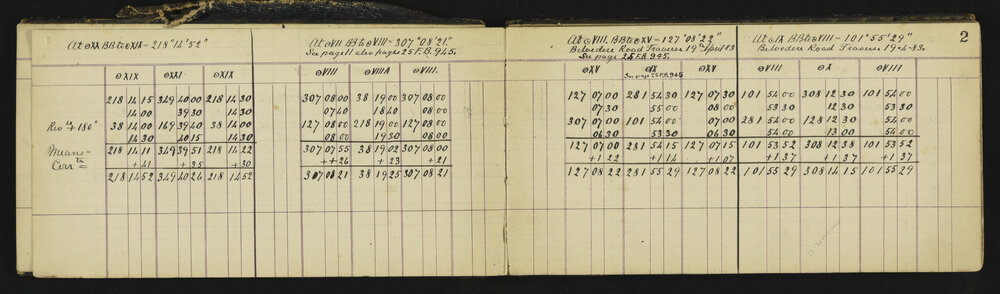 At ⊙XX BB to ⊙XIX - 218° 14' 52"
⊙XIX ⊙XXI ⊙XIX
218 14 15 349 40 00 218 14 30
14 00 39 30 14 30
Rev & +180° 38 14 00 169 39 40 38 14 00
14 30 40 15 14 30
Means- 218 14 11 349 39 51 218 14 22
Corrn + 41 + 35 + 30
218 14 52 349 40 26 218 14 52
At ⊙VII BB to ⊙VIII - 307° 08' 21."
See page 11 also pages 25 F.B. 945.
⊙VIII ⊙VIIIA ⊙VIII.
307 08 00 38 19 00 307 08 00
07 40 18 40 08 00
127 08 00 218 19 00 127 08 00
08 00 19 30 08 00
307 07 55 38 19 02 307 08 00
+ 26 + 23 + 21
307 08 21 38 19 25 307 08 21
At ⊙VIII. BB to ⊙XV - 127° 08' 22"
Belvedere Road Traverse 19th April 13
See page 25 F.B. 945
⊙XV ⊙IX ⊙XV
See page 25 F.B. 945
127 07 00 281 54 30 127 07 30
07 30 55 00 08 00
307 07 00 101 54 00 307 07 00
06 30 53 30 06 30
127 07 00 281 54 15 127 07 15
+ 1 22 + 1 14 + 1 07
127 08 22 281 55 29 127 08 22
At ⊙IX BB to ⊙VIII - 101° 55' 29"
Belvedere Road Traverse 19-4-13.
2
⊙VIII ⊙X ⊙VIII
101 54 00 308 12 30 101 54 00
53 30 12 30 53 30
281 54 00 128 12 30 281 54 00
54 00 13 00 54 00
101 53 52 308 12 38 101 53 52
+ 1 37 + 1 37 + 1 37
101 55 29 308 14 15 101 55 29